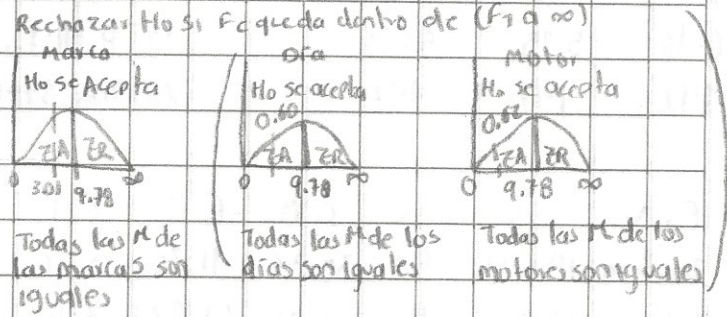 Rechazar Ho si Fc queda dentro de (F, a ∞)
Marca
Ho se Acepta
ZA ZR
0 3.01 9.78 ∞
Todas las M de
las marcas son
iguales
Día
Ho se acepta
0.60
ZA ZR
0 9.78 ∞
Todas las M de los
días son iguales
Motor
Ho se acepta
ZA ZR
0 9.78 ∞
Todas las M de los
motores son iguales